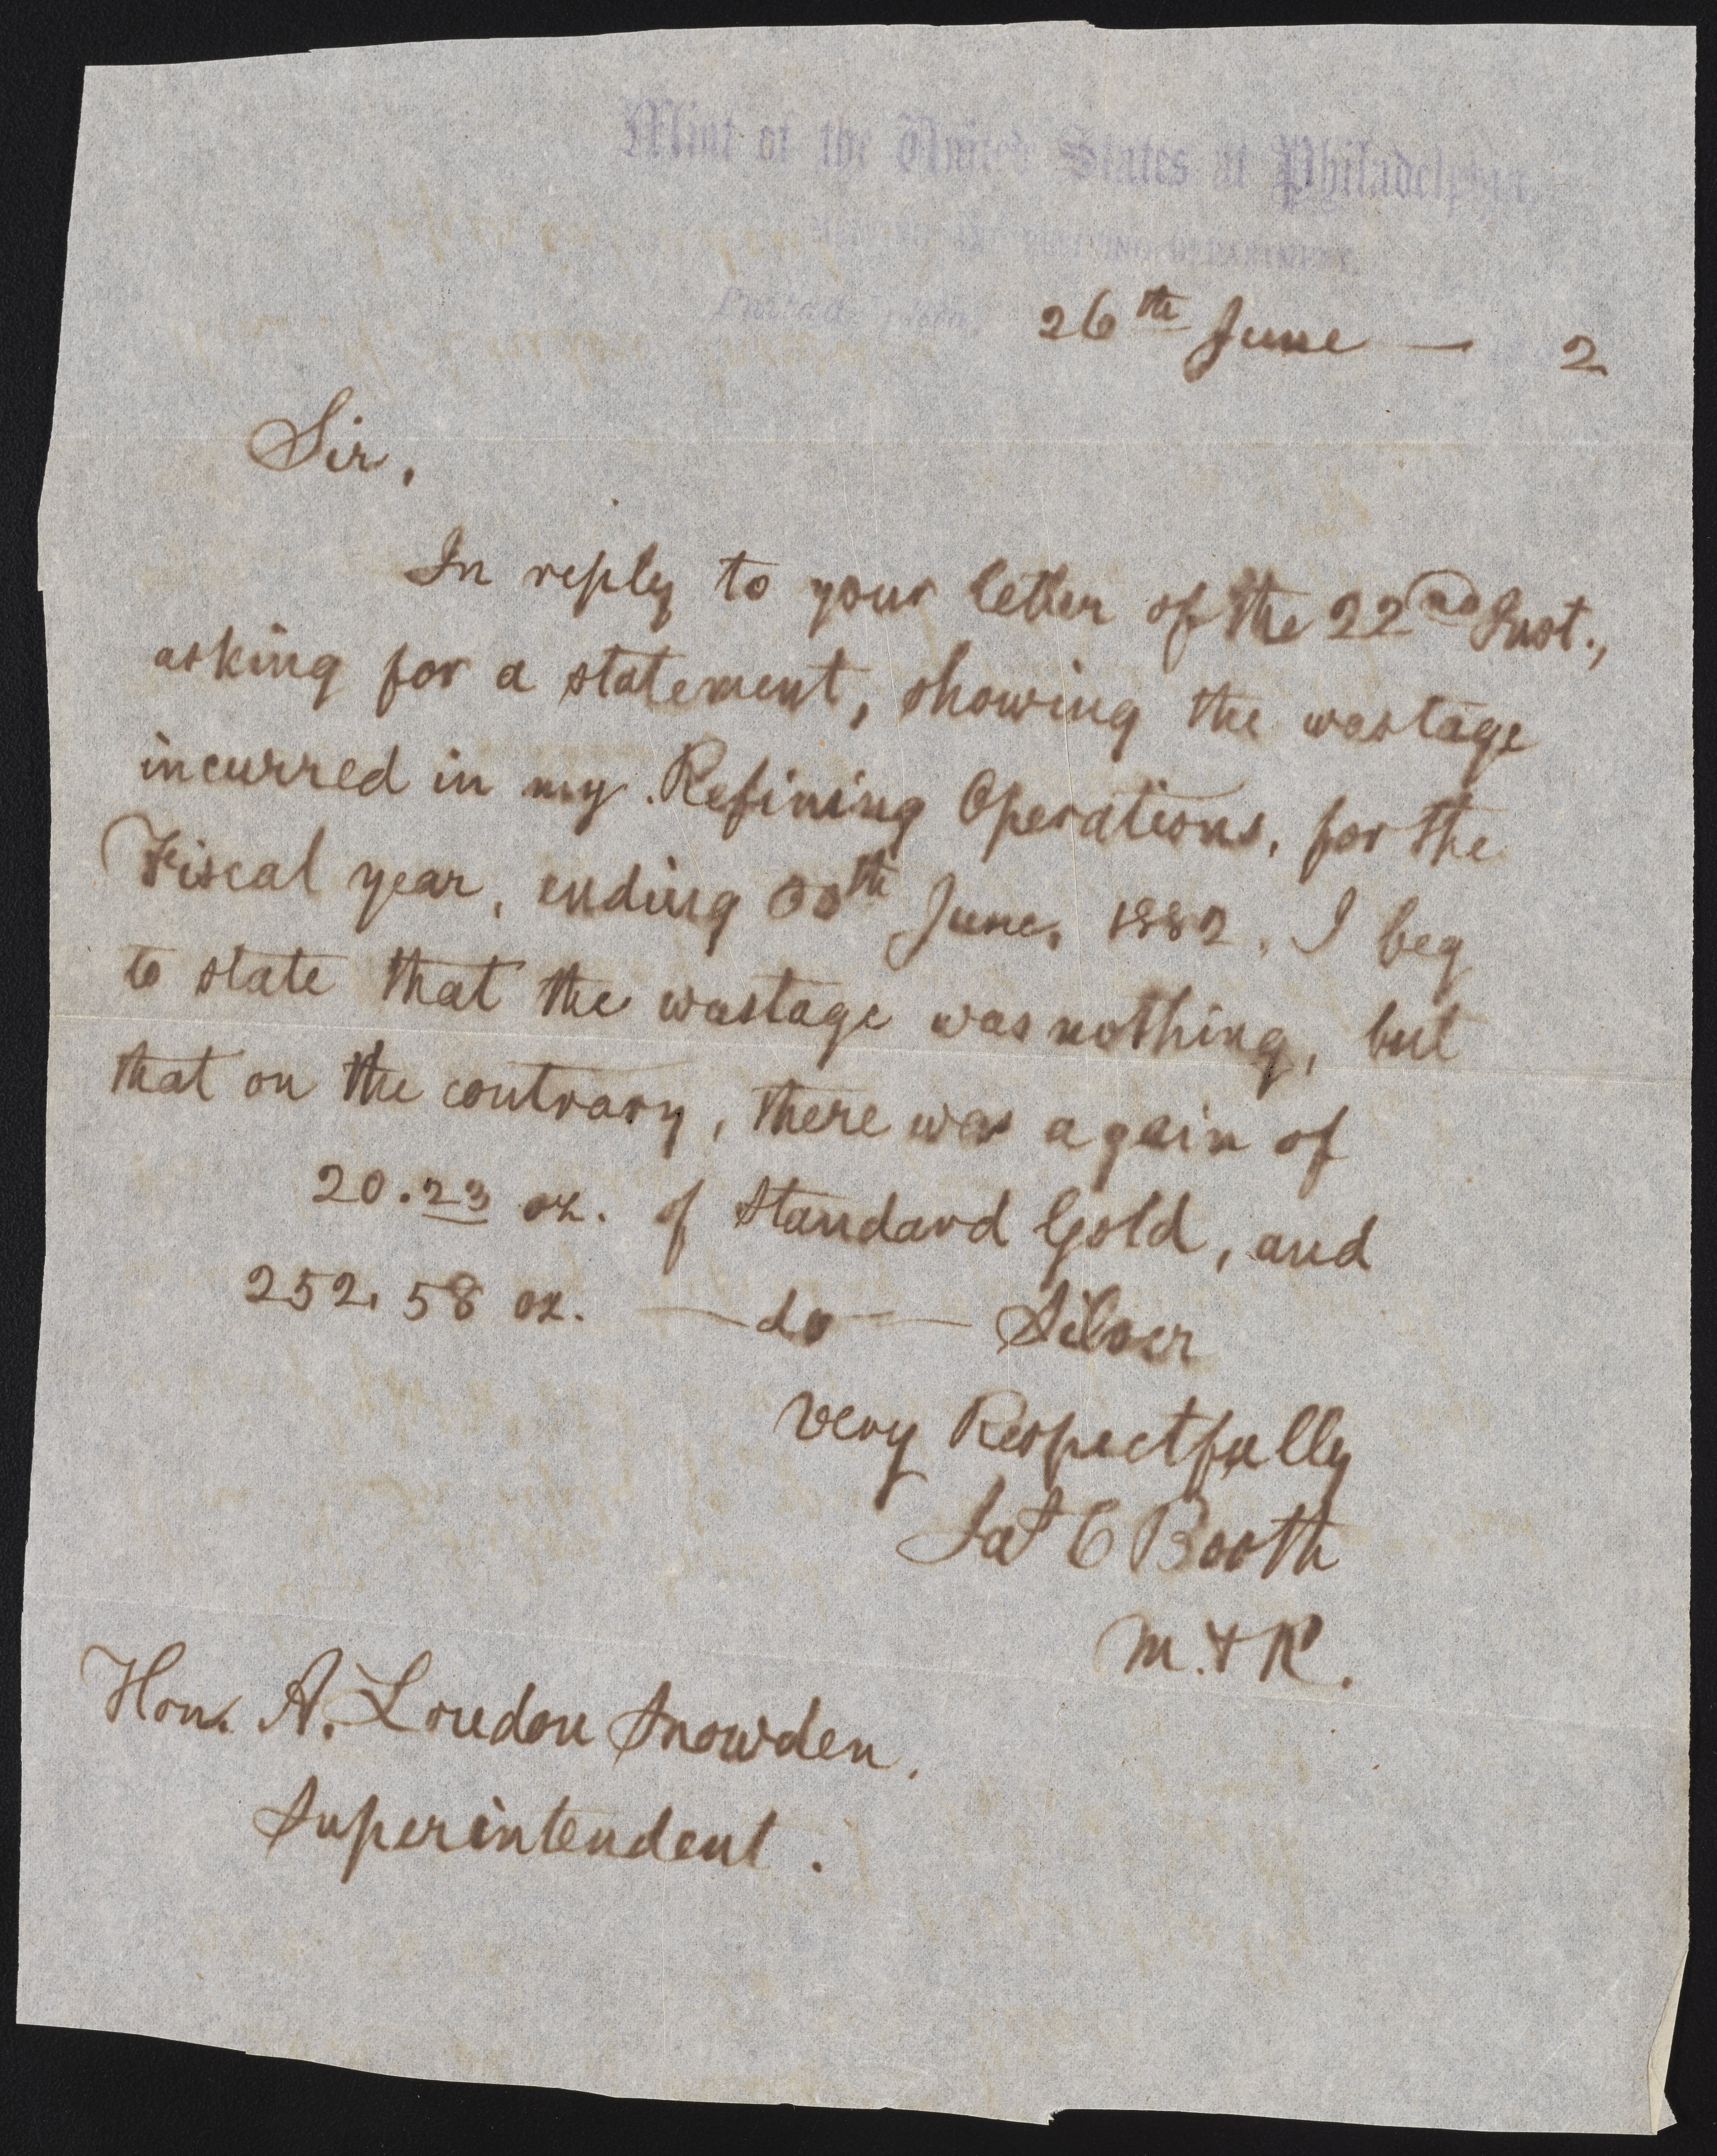 Mint of the United States at Philadelphia,
REFINING DEPARTMENT,
26th June — 2
Sir,
In reply to your letter of the 22nd Inst.,
asking for a statement, showing the wastage
incurred in my Refining Operations, for the
Fiscal year, ending 30th June, 1882, I beg
to state that the wastage was nothing, but
that on the contrary, there was a gain of
20.23 oz. of Standard Gold, and
252.58 oz. — do — Silver
Very Respectfully
Jas C Booth
M. & R.
Hon. A. Loudon Snowden,
Superintendent.